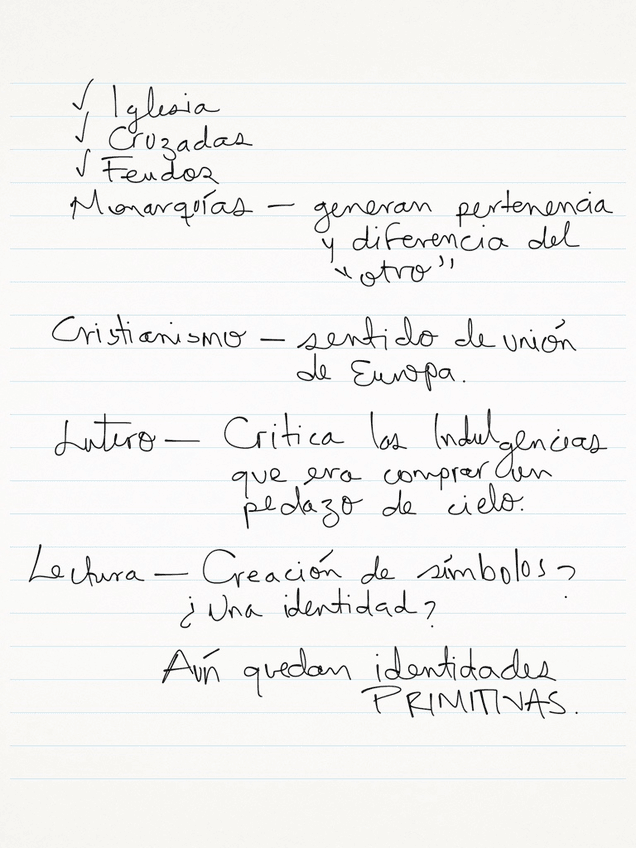 ✓ Iglesia
✓ Cruzadas
✓ Feudos
Monarquías — generan pertenencia
y diferencia del
"otro"
Cristianismo — sentido de unión
de Europa.
Lutero — Critica las Indulgencias
que era comprar un
pedazo de cielo.
Lectura — Creación de símbolos?
¿Una identidad?
Aún quedan identidades
PRIMITIVAS.